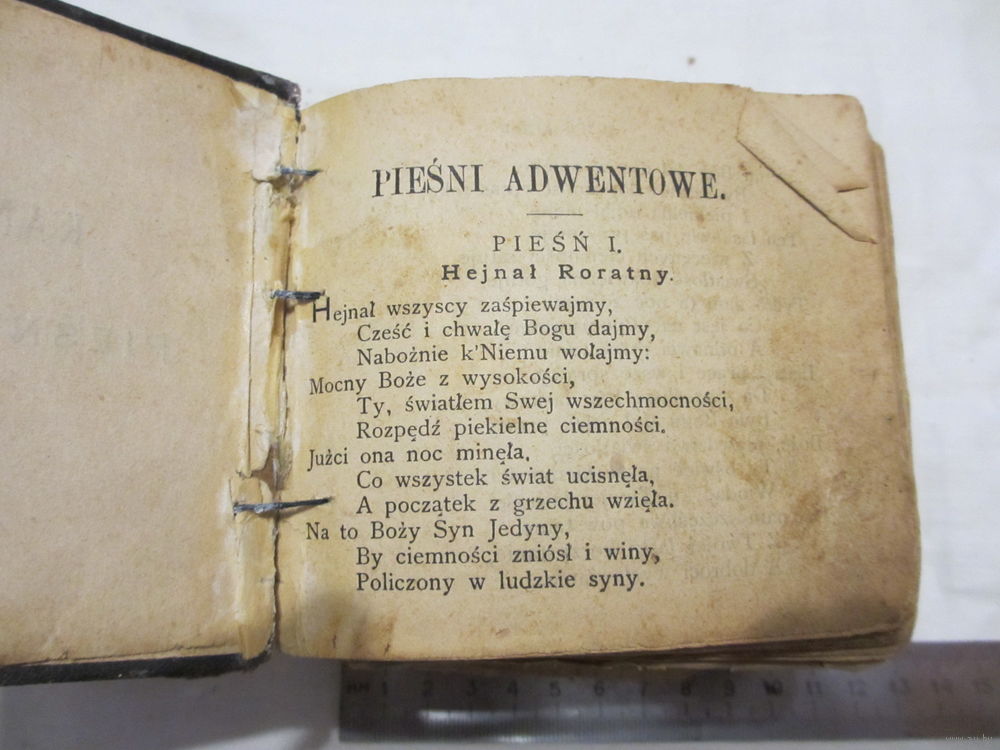 PIEŚNI ADWENTOWE.
PIEŚŃ I.
Hejnał Roratny.
Hejnał wszyscy zaśpiewajmy,
Cześć i chwałę Bogu dajmy,
Nabożnie k'Niemu wołajmy:
Mocny Boże z wysokości,
Ty, światłem Swej wszechmocności,
Rozpędź piekielne ciemności.
Jużci ona noc minęła,
Co wszystek świat ucisnęła,
A początek z grzechu wzięła.
Na to Boży Syn Jedyny,
By ciemności zniósł i winy,
Policzony w ludzkie syny.
MM 1 2 3 4 5 6 7 8 9 10 11 12 13 14 15